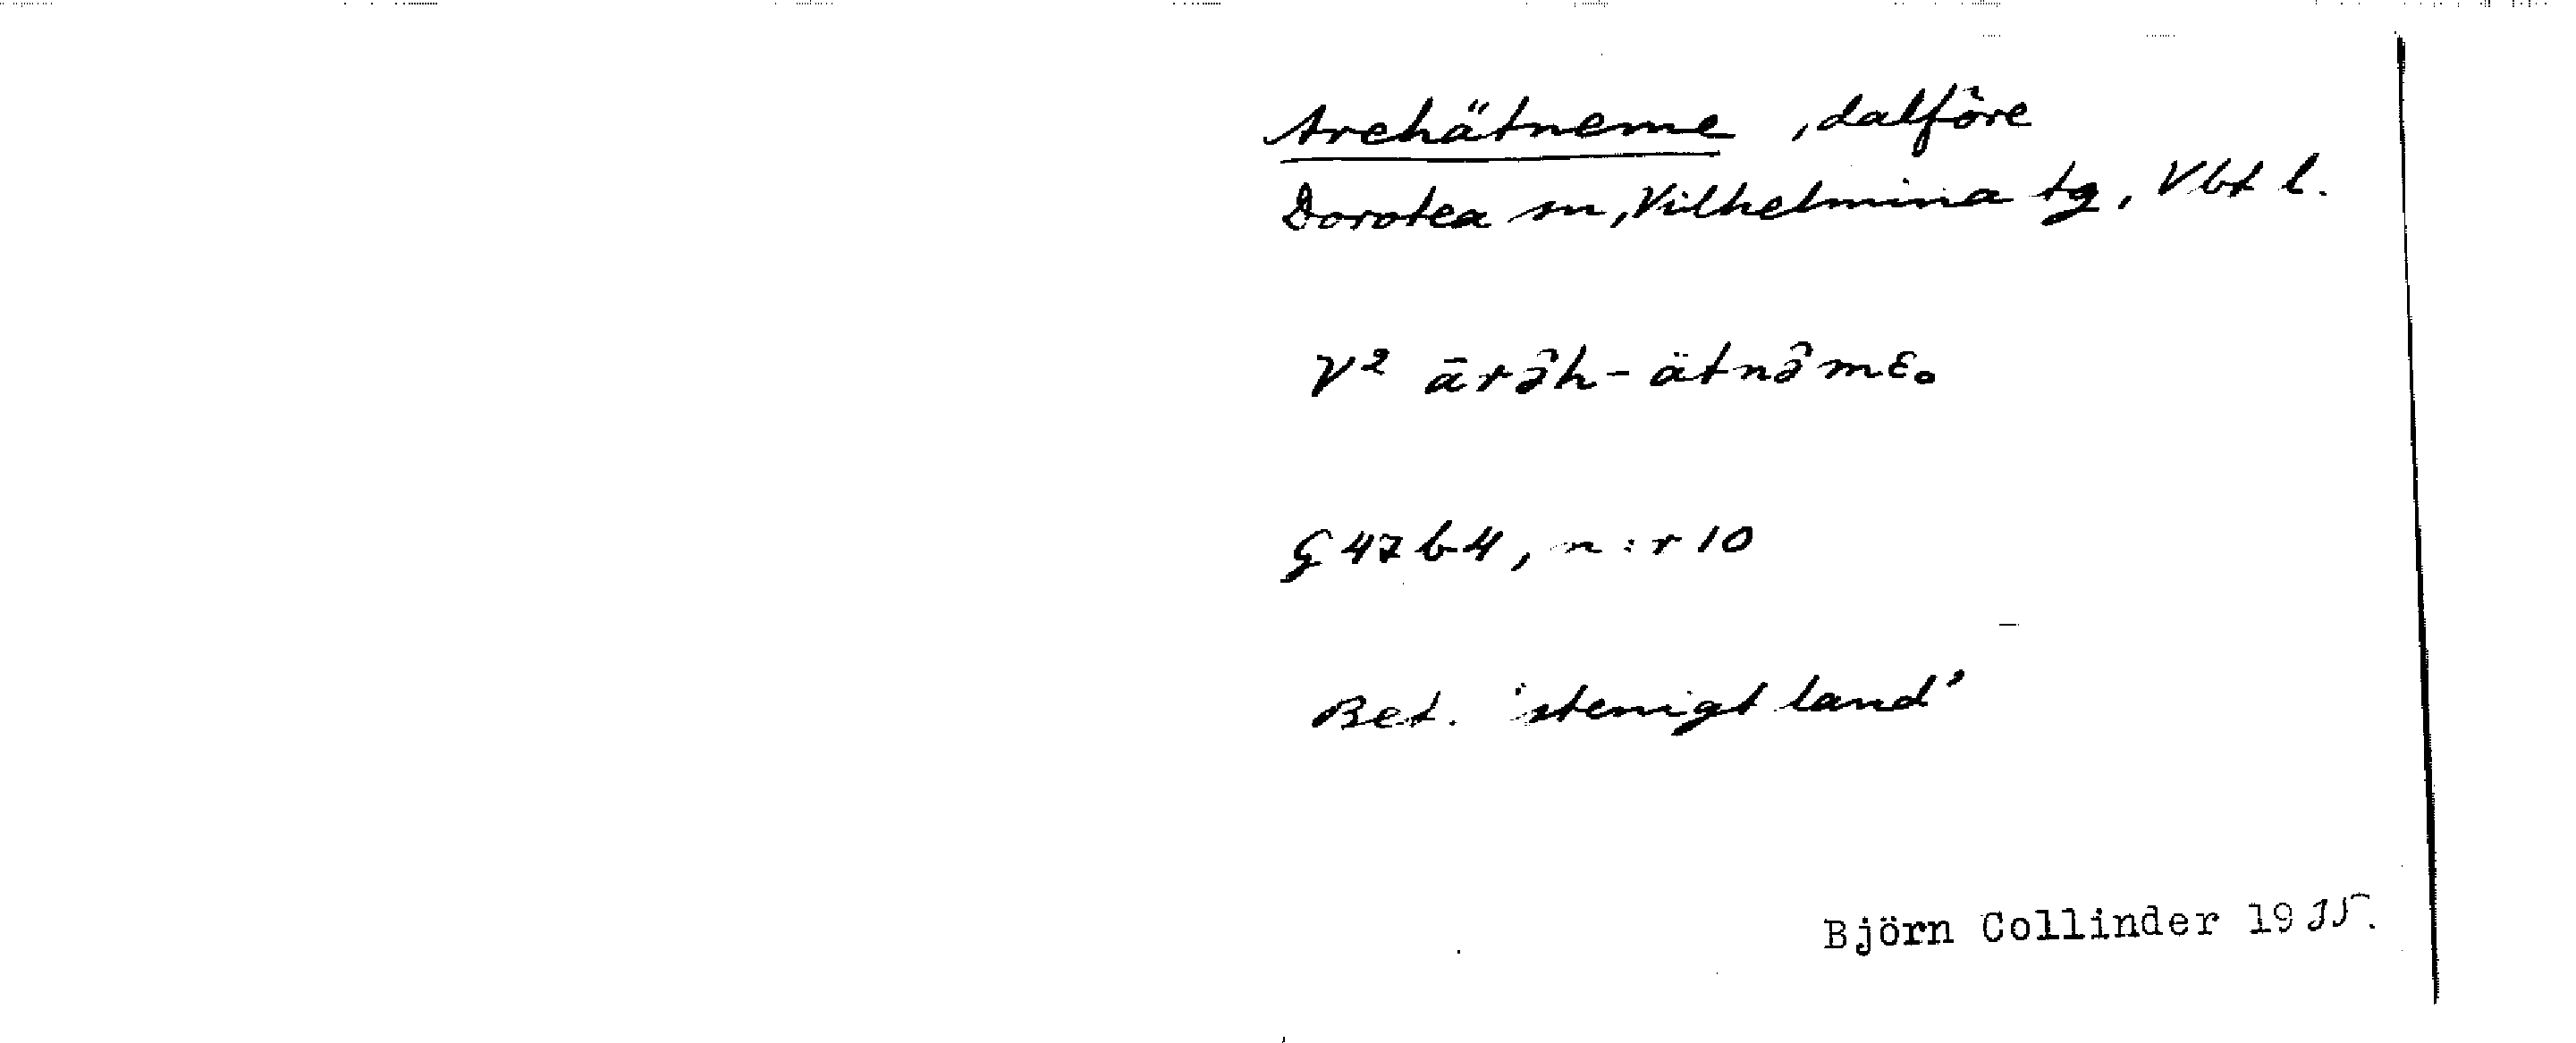 Arehätneme, dalföre
Dorotea sn, Vilhelmina tg, Vbt l.
V² ārə̑h-ätnə̑mɛ.
G 47 b 4, n:r 10
Bet. 'stenigt land'
Björn Collinder 1935.